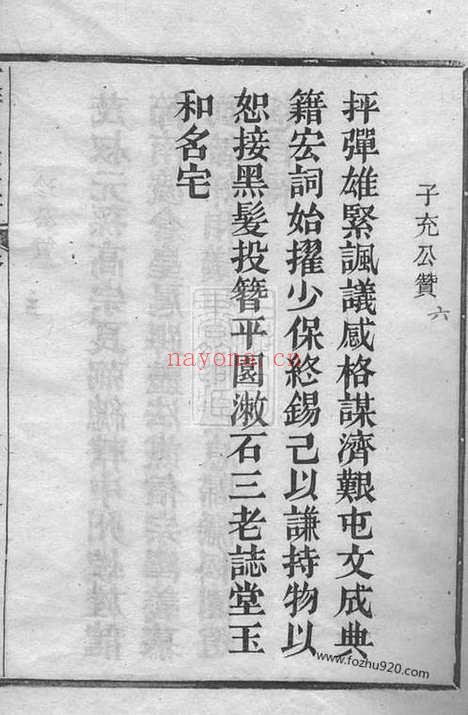 子充公贊 六
抨彈雄緊諷議感格謀濟艱屯文成典
籍宏詞始擢少保終錫己以謙持物以
恕接黑髮投簪平園漱石三老誌堂玉
和名宅
nayona.cn
www.fozhu920.com